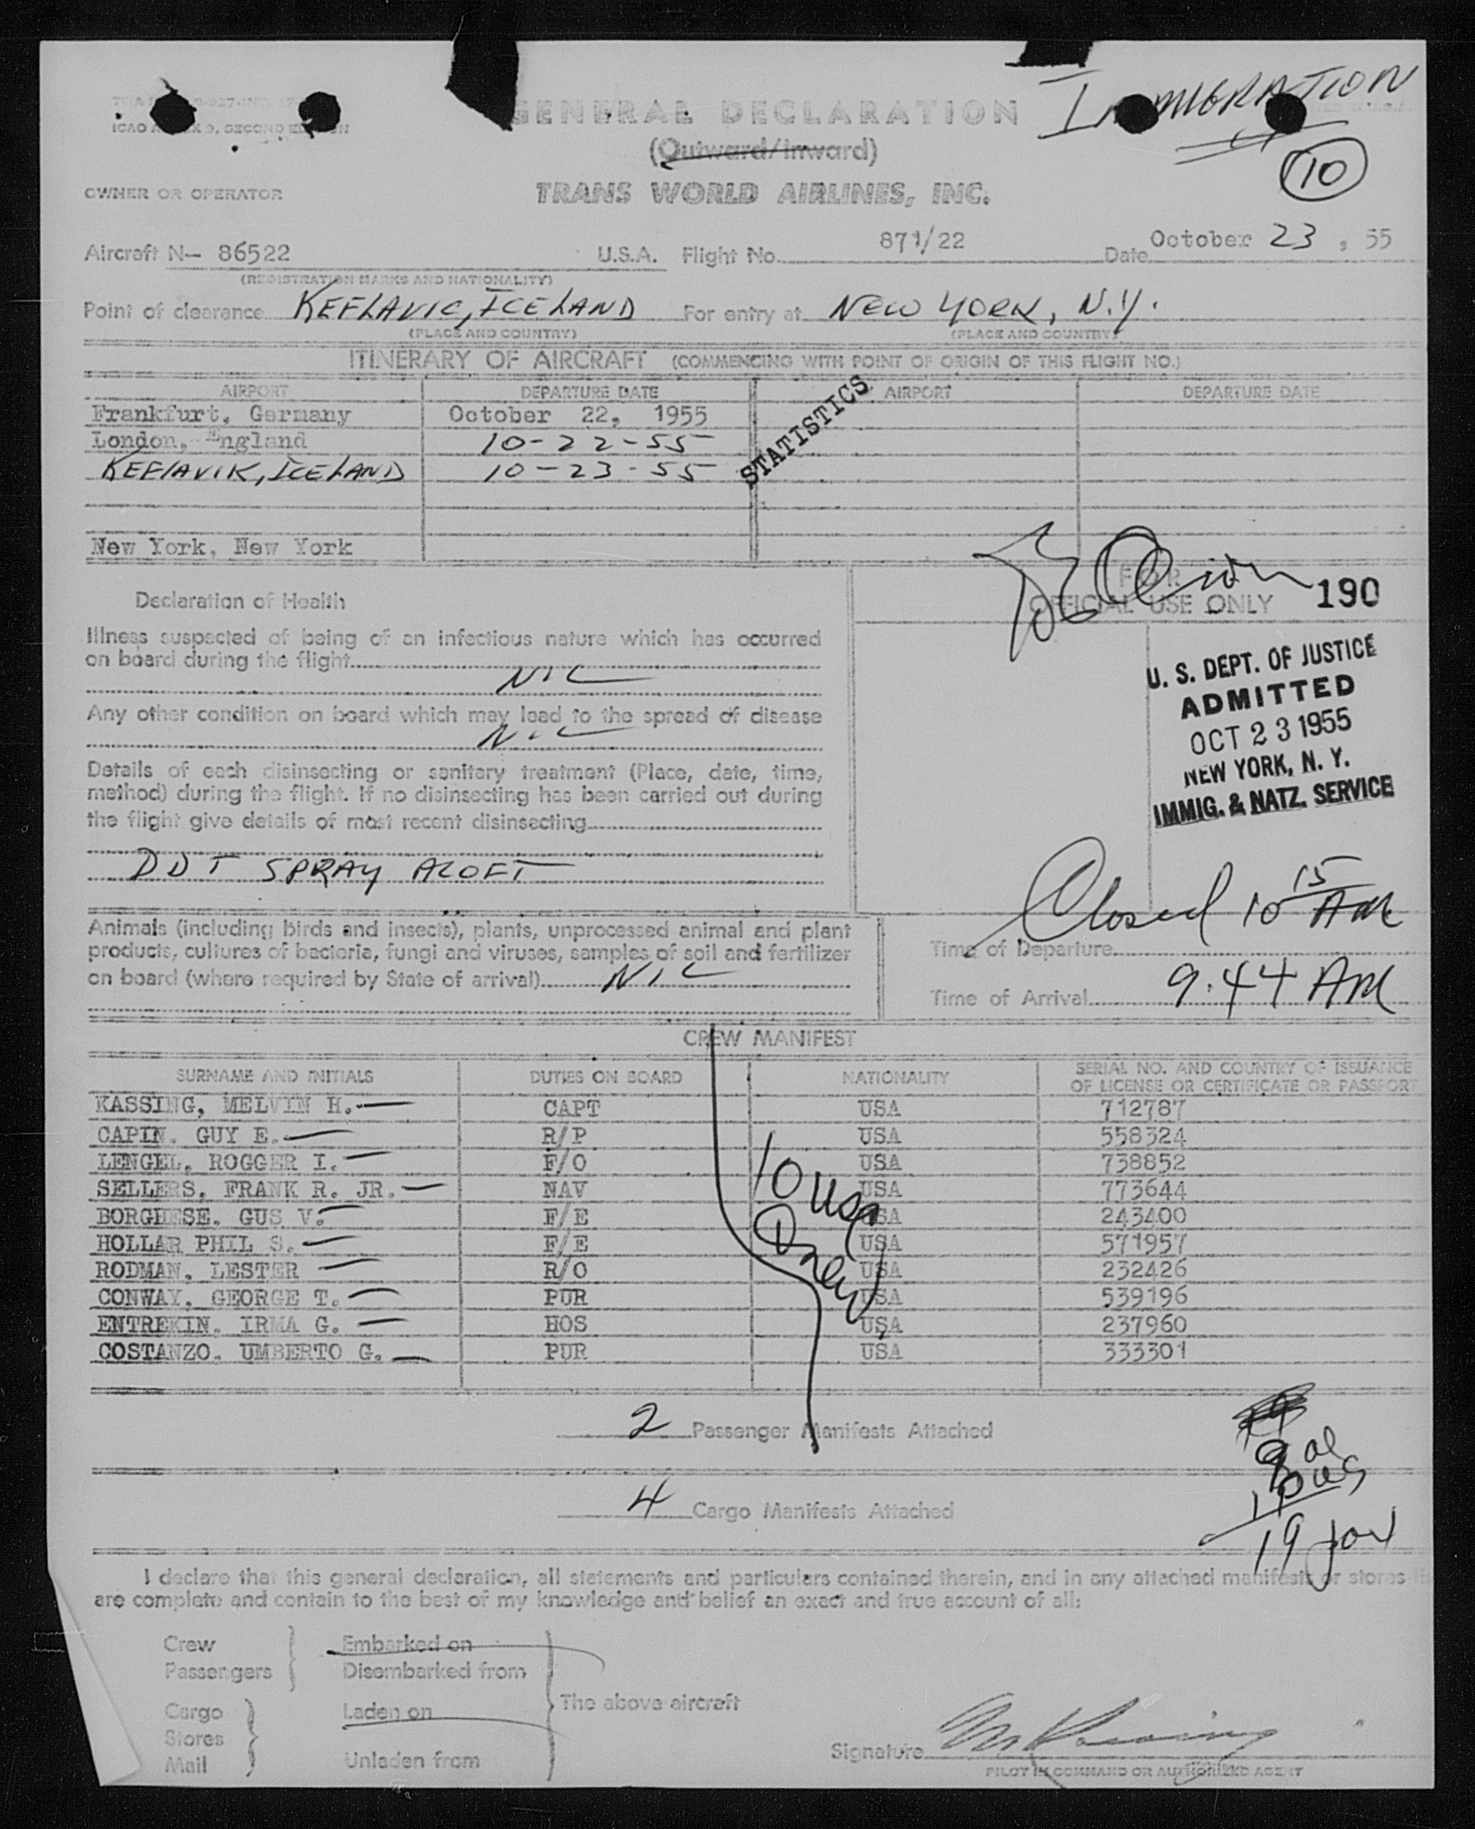 ICAO ANNEX 9, SECOND EDITION
GENERAL DECLARATION
IMMIGRATION
(Outward/Inward)
10
OWNER OR OPERATOR
TRANS WORLD AIRLINES, INC.
Aircraft N- 86522 U.S.A. Flight No. 871/22 Date October 23, 55
(REGISTRATION MARKS AND NATIONALITY)
Point of clearance KEFLAVIC, ICELAND For entry at NEW YORK, N.Y.
(PLACE AND COUNTRY) (PLACE AND COUNTRY)
ITINERARY OF AIRCRAFT (COMMENCING WITH POINT OF ORIGIN OF THIS FLIGHT NO.)
AIRPORT DEPARTURE DATE AIRPORT DEPARTURE DATE
Frankfurt, Germany October 22, 1955
London, England 10-22-55
KEFLAVIK, ICELAND 10-23-55
STATISTICS
New York, New York
FOR
OFFICIAL USE ONLY 190
Declaration of Health
Illness suspected of being of an infectious nature which has occurred
on board during the flight
NIL
Any other condition on board which may lead to the spread of disease
NIL
Details of each disinsecting or sanitary treatment (Place, date, time,
method) during the flight. If no disinsecting has been carried out during
the flight give details of most recent disinsecting
DDT SPRAY ALOFT
U. S. DEPT. OF JUSTICE
ADMITTED
OCT 23 1955
NEW YORK, N. Y.
IMMIG. & NATZ. SERVICE
Animals (including birds and insects), plants, unprocessed animal and plant
products, cultures of bacteria, fungi and viruses, samples of soil and fertilizer
on board (where required by State of arrival) NIL
Closed 10 15 AM
Time of Departure
Time of Arrival 9:44 AM
CREW MANIFEST
SURNAME AND INITIALS DUTIES ON BOARD NATIONALITY SERIAL NO. AND COUNTRY OF ISSUANCE
OF LICENSE OR CERTIFICATE OR PASSPORT
KASSING, MELVIN H. CAPT USA 712787
CAPIN. GUY E. R/P USA 558324
LENGEL, ROGGER I. F/O USA 738852
SELLERS, FRANK R. JR. NAV USA 773644
BORGHESE. GUS V. F/E USA 243400
HOLLAR PHIL S. F/E USA 571957
RODMAN, LESTER R/O USA 232426
CONWAY, GEORGE T. PUR USA 539196
ENTREKIN. IRMA G. HOS USA 237960
COSTANZO. UMBERTO G. PUR USA 333301
10 usa
2 Passenger Manifests Attached
4 Cargo Manifests Attached
9 al
10 us
19
I declare that this general declaration, all statements and particulars contained therein, and in any attached manifests or stores
are complete and contain to the best of my knowledge and belief an exact and true account of all:
Crew Embarked on
Passengers Disembarked from
The above aircraft
Cargo Laden on
Stores
Mail Unladen from
Signature
PILOT IN COMMAND OR AUTHORIZED AGENT